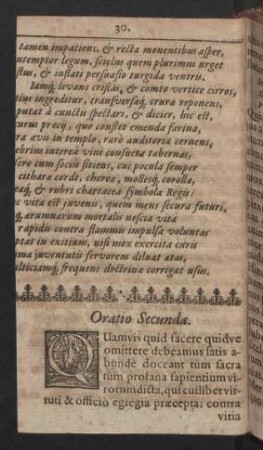 30.
tamen inpatiens, & recta monentibus asper,
ntemptor legum, sciolus quem plurimus urget
stus, & inflati persuasio turgida ventris.
Iamq́; levans cristas, & comto vertice cirros,
tius ingreditur, transversaq́; crura reponens,
putat à cunctis spectari, & dicier, hic est,
turus precij, quo constet emenda farina,
ra avis in templo, rarò auditoria cernens,
ebrius intereà vini consueta tabernas,
sero cum socijs sitiens, cui pocula semper
cithara cordi, choreæ, mollesq́; corollæ,
eaq́; & rubri chartacea symbola Regis:
c vita est juvenis, quem meus secura futuri,
q́; ærumnarum mortalis nescia vitæ
rapidis contra flammis impulsa voluntas
ptat in exitium, nisi mox exercita curis
ima juventutis fervorem diluat ætas,
ultitiamq́; frequens doctrina corrigat usus.
Oratio Secunda.
QUamvis quid facere quidve
omittere debeamus satis a-
bundè doceant tùm sacra
tùm profana sapientium vi-
rorum dicta, qui cuilibet vir-
tuti & officiò egregia præcepta: contra
vitia